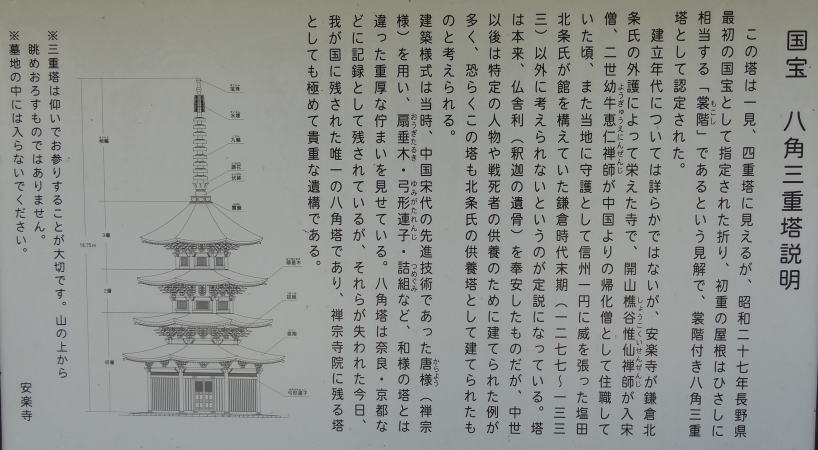 国宝　八角三重塔説明
この塔は一見、四重塔に見えるが、昭和二十七年長野県
最初の国宝として指定された折り、初重の屋根はひさしに
相当する「裳階」であるという見解で、裳階付き八角三重
もこし
塔として認定された。
建立年代については詳らかではないが、安楽寺が鎌倉北
条氏の外護によって栄えた寺で、開山樵谷惟仙禅師が入宋
しょうこくいせんぜんじ
僧、二世幼牛恵仁禅師が中国よりの帰化僧として住職して
ようぎゅうえにんぜんじ
いた頃、また当地に守護として信州一円に威を張った塩田
北条氏が館を構えていた鎌倉時代末期（一二七七～一三三
三）以外に考えられないというのが定説になっている。塔
は本来、仏舎利（釈迦の遺骨）を奉安したものだが、中世
以後は特定の人物や戦死者の供養のために建てられた例が
多く、恐らくこの塔も北条氏の供養塔として建てられたも
のと考えられる。
建築様式は当時、中国宋代の先進技術であった唐様（禅宗
からよう
様）を用い、扇垂木・弓形連子・詰組など、和様の塔とは
おうぎたるき
ゆみがたれんじ
つめぐみ
違った重厚な佇まいを見せている。八角塔は奈良・京都な
どに記録として残されているが、それらが失われた今日、
我が国に残された唯一の八角塔であり、禅宗寺院に残る塔
としても極めて貴重な遺構である。
宝珠
水煙
九輪
伏鉢
露盤
相輪
3層
2層
初層
18.75m
扇垂木
詰組
裳階
弓形連子
※三重塔は仰いでお参りすることが大切です。山の上から
眺めおろすものではありません。
※墓地の中には入らないでください。
安楽寺